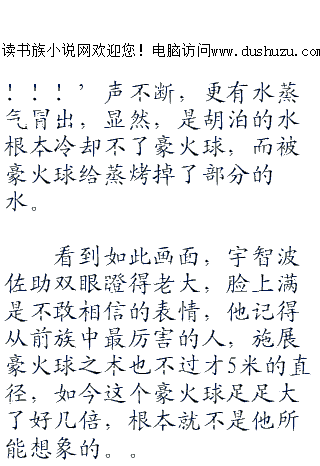 读书族小说网欢迎您！电脑访问www.dushuzu.com
！！！’声不断，更有水蒸
气冒出，显然，是胡泊的水
根本冷却不了豪火球，而被
豪火球给蒸烤掉了部分的
水。
看到如此画面，宇智波
佐助双眼瞪得老大，脸上满
是不敢相信的表情，他记得
从前族中最厉害的人，施展
豪火球之术也不过才5米的直
径，如今这个豪火球足足大
了好几倍，根本就不是他所
能想象的。。